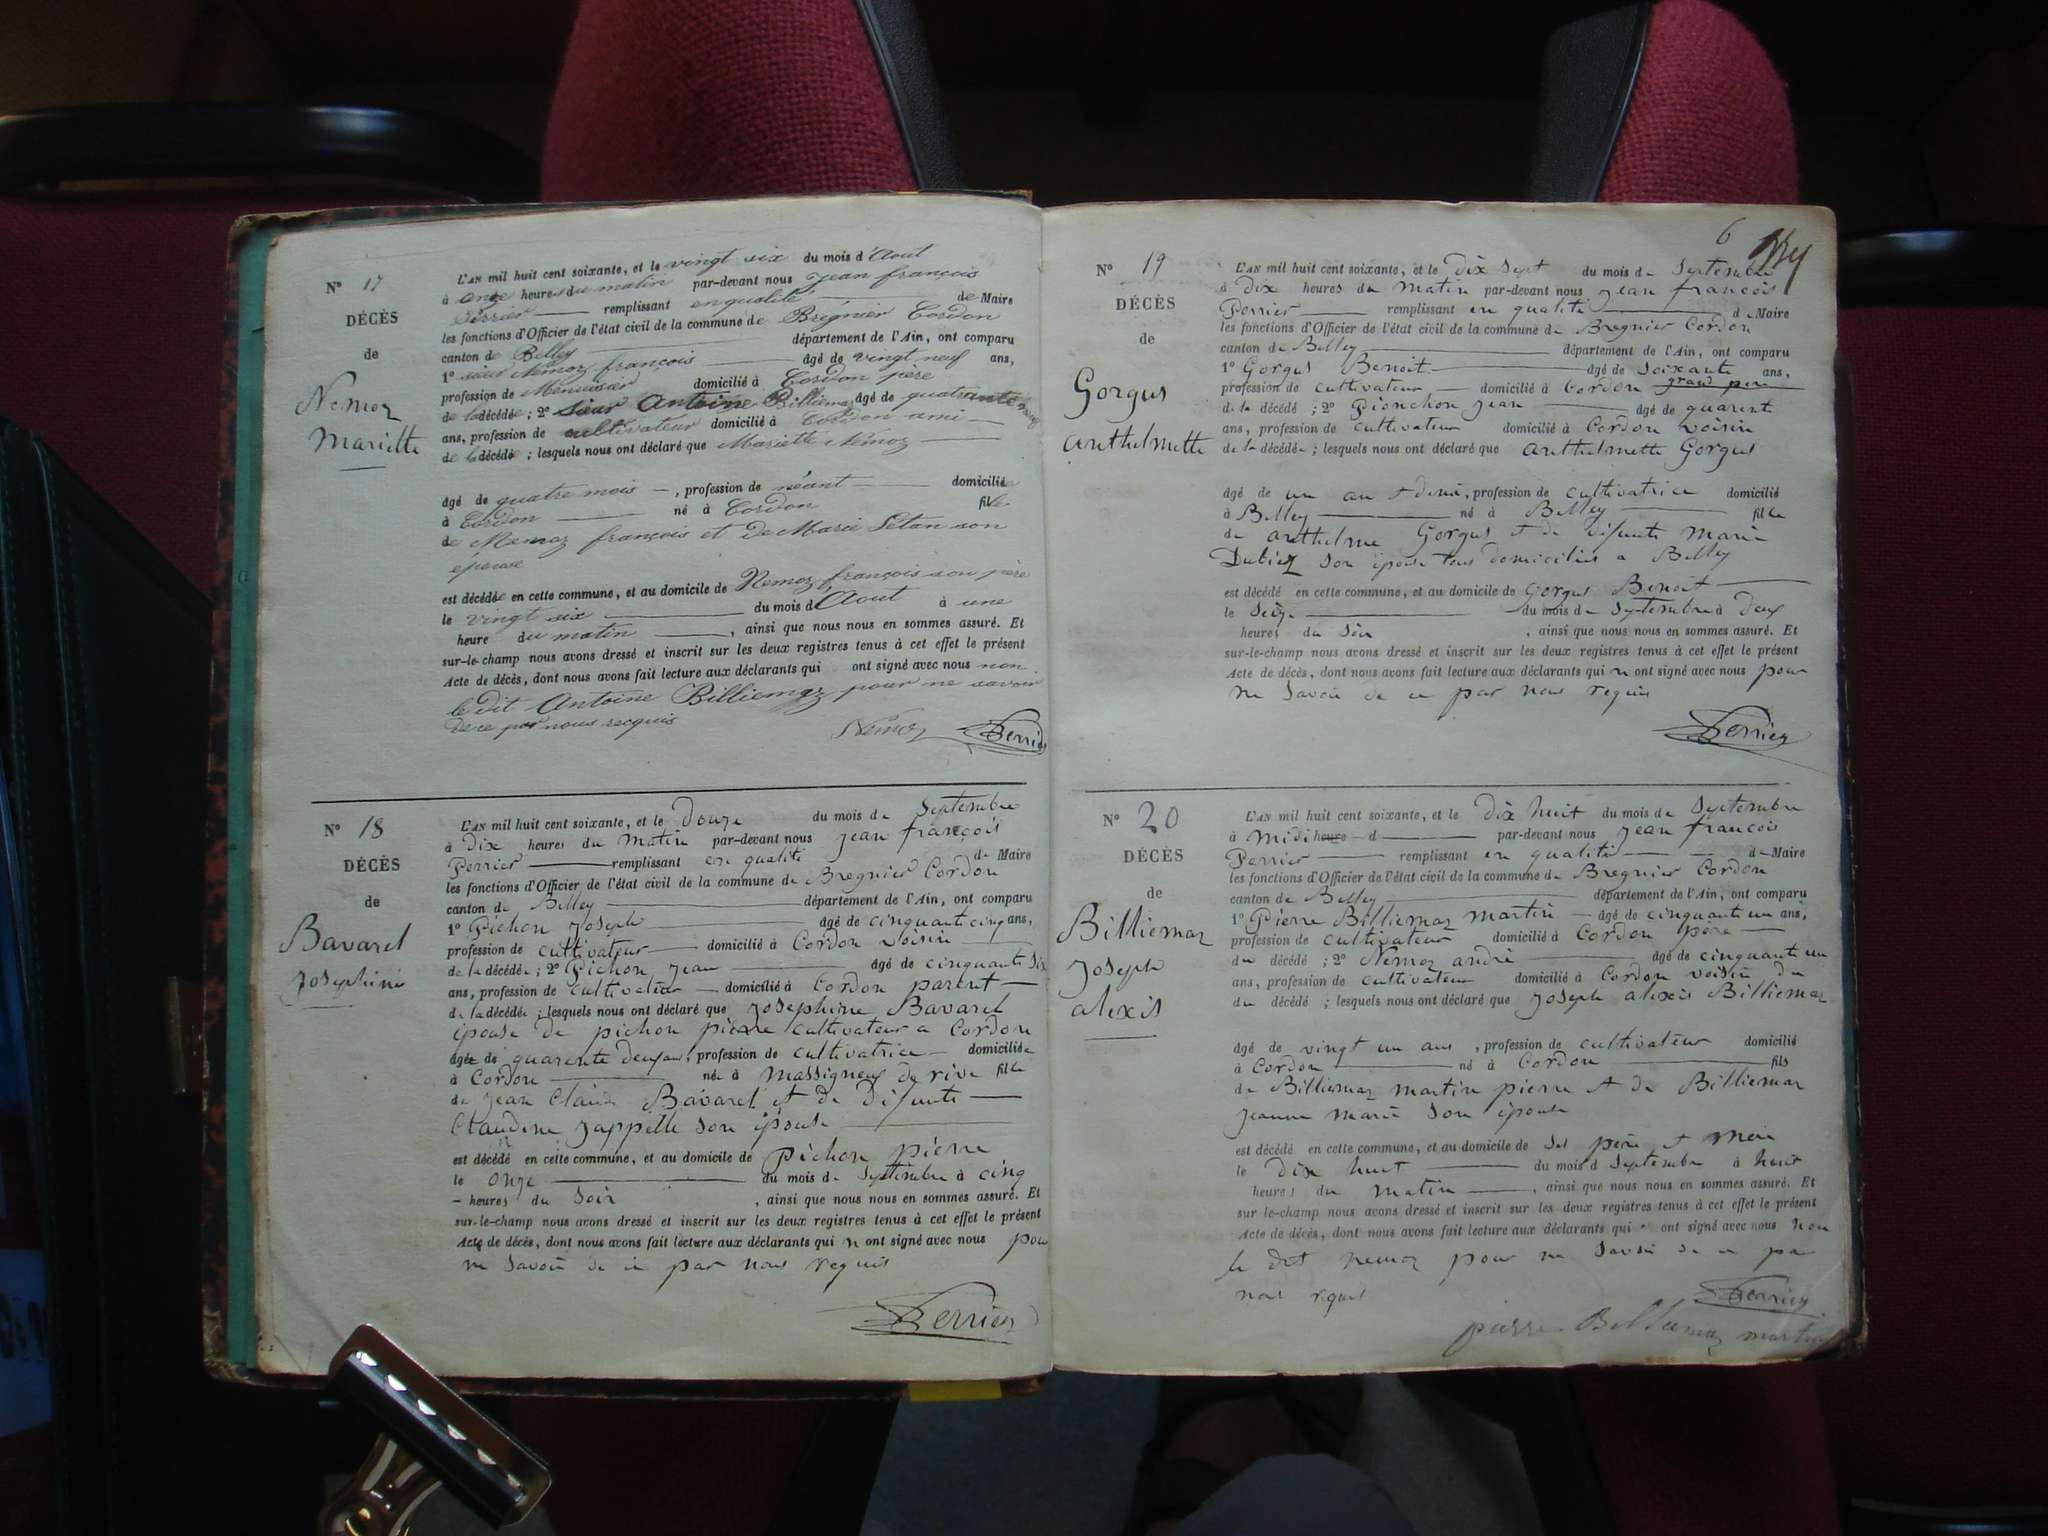 N° 17
DÉCÈS
de
Nemoz
Mariette
L'AN mil huit cent soixante, et le vingt six du mois d'Aout
à onze heures du matin par-devant nous Jean françois
Perrier remplissant en qualité de Maire
les fonctions d'Officier de l'état civil de la commune de Brégnier Cordon
canton de Belley département de l'Ain, ont comparu
1° sieur Nemoz françois âgé de vingt neuf ans,
profession de Menuisier domicilié à Cordon père
de la décédée ; 2° Sieur Antoine Billiemaz âgé de quarante
ans, profession de cultivateur domicilié à Cordon ami
de la décédée ; lesquels nous ont déclaré que Mariette Nemoz
âgé de quatre mois, profession de néant domicilié
à Cordon né à Cordon fille
de Nemoz françois et de Marie Létan son
épouse
est décédée en cette commune, et au domicile de Nemoz françois son père
le vingt six du mois d'Aout à une
heure du matin, ainsi que nous nous en sommes assuré. Et
sur-le-champ nous avons dressé et inscrit sur les deux registres tenus à cet effet le présent
Acte de décès, dont nous avons fait lecture aux déclarants qui ont signé avec nous non
le dit Antoine Billiemaz pour ne savoir
de ce par nous recquis
Nemoz Perrier
N° 18
DÉCÈS
de
Bavarel
Josephine
L'AN mil huit cent soixante, et le Douze du mois de Septembre
à Dix heures du matin par-devant nous Jean françois
Perrier remplissant en qualité de Maire
les fonctions d'Officier de l'état civil de la commune de Bregnier Cordon
canton de Belley département de l'Ain, ont comparu
1° Pichon Joseph âgé de cinquante cinq ans,
profession de cultivateur domicilié à Cordon voisin
de la décédée ; 2° Pichon Jean âgé de cinquante six
ans, profession de cultivateur domicilié à Cordon parent
de la décédée ; lesquels nous ont déclaré que Josephine Bavarel
épouse de pichon pierre cultivateur a Cordon
âgée de quarente deux ans, profession de cultivatrice domiciliée
à Cordon née à Massigneu de rive fille
de Jean Claude Bavarel et de Defunte
Claudine Jappelle son épouse
est décédé en cette commune, et au domicile de Pichon pierre
le onze du mois de Septembre à cinq
heures du Soir, ainsi que nous nous en sommes assuré. Et
sur-le-champ nous avons dressé et inscrit sur les deux registres tenus à cet effet le présent
Acte de décès, dont nous avons fait lecture aux déclarants qui n ont signé avec nous pour
ne Savoir de ce par nous requis
Perrier
6
N° 19
DÉCÈS
de
Gorgus
anthelmette
L'AN mil huit cent soixante, et le Dix Sept du mois de Septembre
à Dix heures du Matin par-devant nous Jean françois
Perrier remplissant en qualité de Maire
les fonctions d'Officier de l'état civil de la commune de Bregnier Cordon
canton de Belley département de l'Ain, ont comparu
1° Gorgus Benoit âgé de Soixante ans,
profession de cultivateur domicilié à Cordon grand pere
de la décédé ; 2° Pionchon Jean âgé de quarent
ans, profession de cultivateur domicilié à Cordon voisin
de la décédée ; lesquels nous ont déclaré que anthelmette Gorgus
âgé de un an et demi, profession de cultivatrice domicilié
à Belley né à Belley fille
de anthelme Gorgus et de défunte Marie
son épouse tous domiciliés a Belley
est décédé en cette commune, et au domicile de Gorgus Benoit
le Seize du mois de Septembre à Deux
heures du Soir, ainsi que nous nous en sommes assuré. Et
sur-le-champ nous avons dressé et inscrit sur les deux registres tenus à cet effet le présent
Acte de décès, dont nous avons fait lecture aux déclarants qui n ont signé avec nous pour
ne Savoir de ce par nous requis
Perrier
N° 20
DÉCÈS
de
Billiemaz
Joseph
alexis
L'AN mil huit cent soixante, et le Dix huit du mois de Septembre
à Midi heure d par-devant nous Jean françois
Perrier remplissant en qualité de Maire
les fonctions d'Officier de l'état civil de la commune de Bregnier Cordon
canton de Belley département de l'Ain, ont comparu
1° Pierre Billiemaz martin âgé de cinquante un ans,
profession de cultivateur domicilié à Cordon père
du décédé ; 2° Nemoz andré âgé de cinquante un
ans, profession de cultivateur domicilié à Cordon voisin du
du décédé ; lesquels nous ont déclaré que Joseph alexis Billiemaz
âgé de vingt un ans, profession de cultivateur domicilié
à Cordon né à Cordon fils
de Billiemaz martin pierre et de Billiemaz
Jeanne Marie Son épouse
est décédé en cette commune, et au domicile de Ses père et Mère
le Dix huit du mois d Septembre à huit
heures du matin, ainsi que nous nous en sommes assuré. Et
sur-le-champ nous avons dressé et inscrit sur les deux registres tenus à cet effet le présent
Acte de décès, dont nous avons fait lecture aux déclarants qui ont signé avec nous non
le dit nemoz pour ne Savoir de ce par
nous requis
Perrier
pierre Billiemaz martin